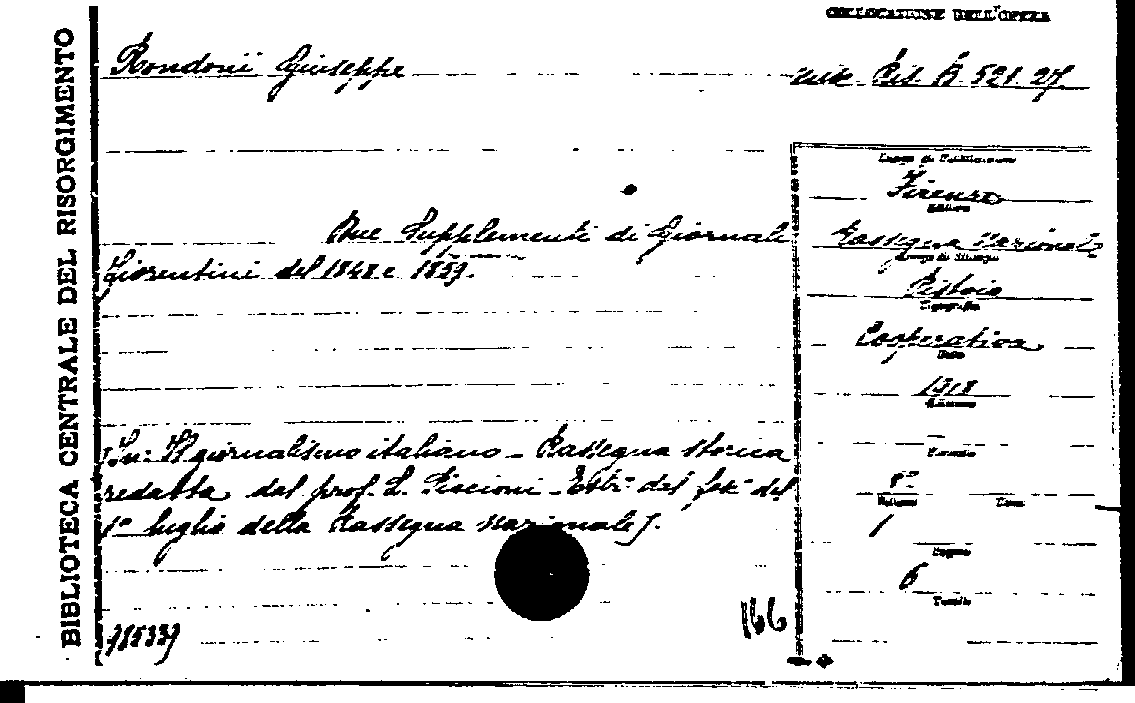 BIBLIOTECA CENTRALE DEL RISORGIMENTO
COLLOCAZIONE DELL'OPERA
Rondoni Giuseppe
Ris. A 521. 27.
Due Supplementi di Giornali
Fiorentini del 1848 e 1859.
[In: Il giornalismo italiano - Rassegna storica
redatta dal prof. L. Piccioni - Estr. del fasc. del
1° luglio della Rassegna nazionale].
Luogo di Pubblicazione
Firenze
Editore
Rassegna Nazionale
Luogo di Stampa
Pistoia
Tipografia
Cooperativa
Data
1918
Edizione
Formato
8°
Volume
1
Pagine
6
Tavole
166